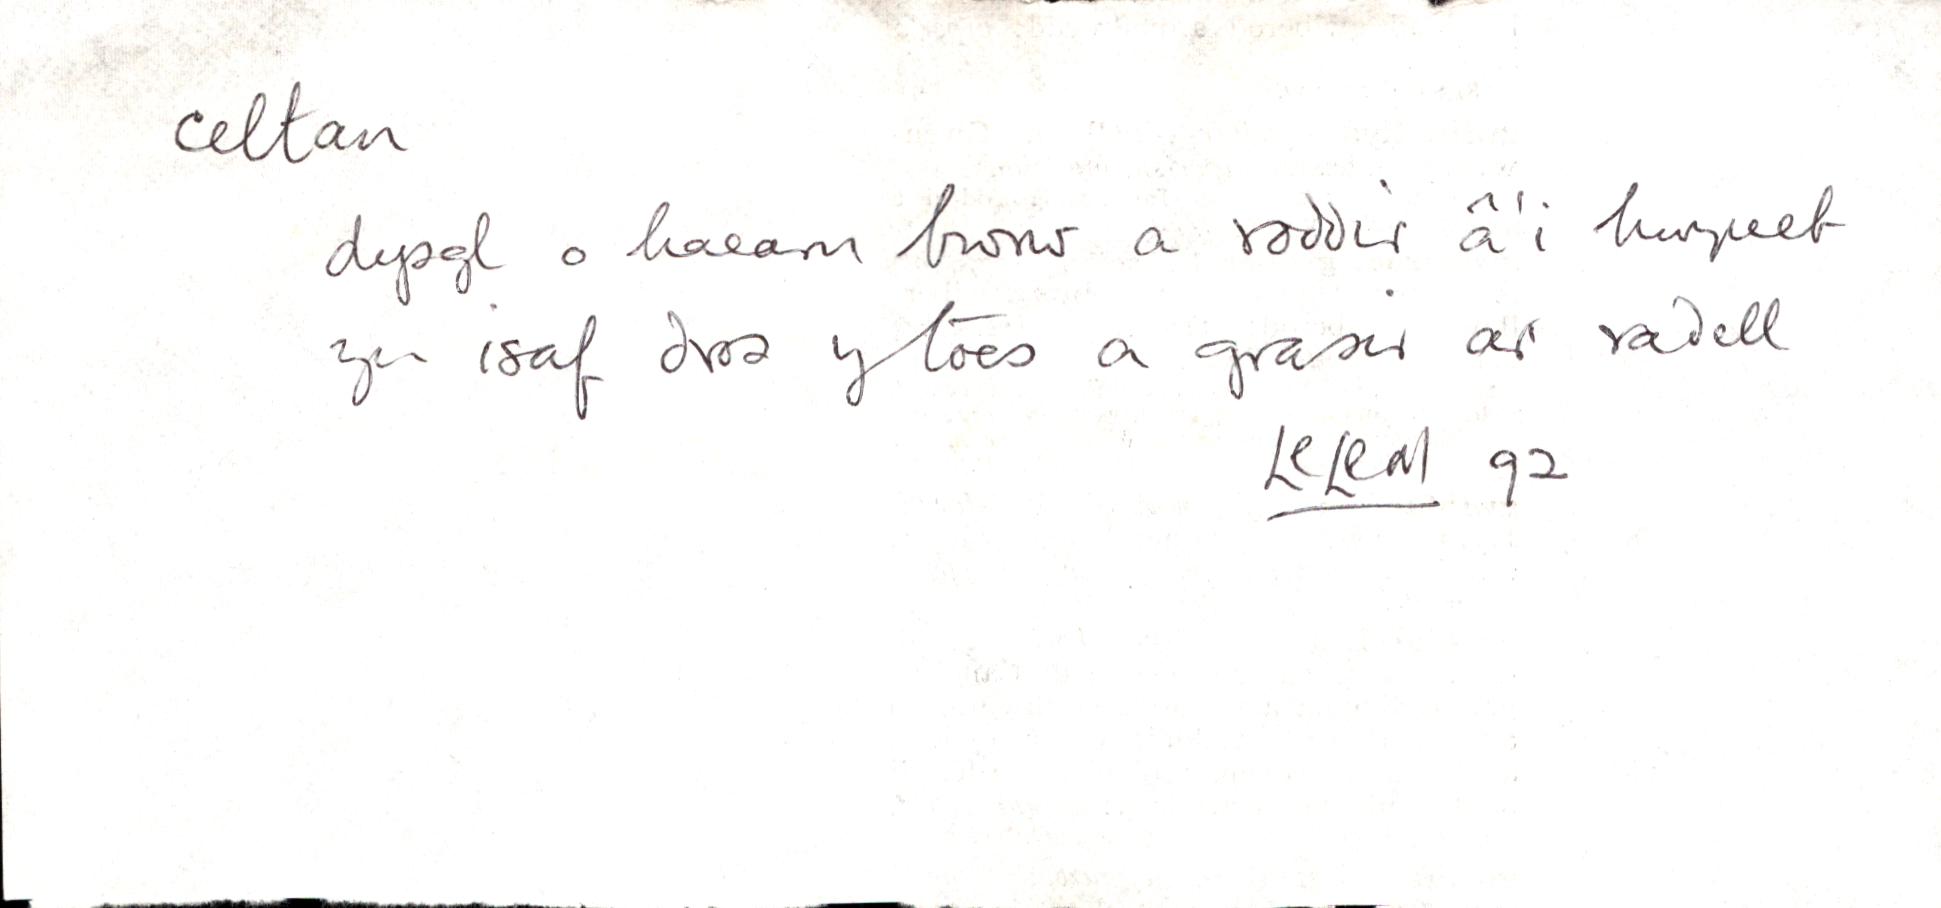 celtan
dysgl o haearn bwrw a roddir â'i hwyneb
yn isaf dros y toes a grasir ar radell
LlLlM 92